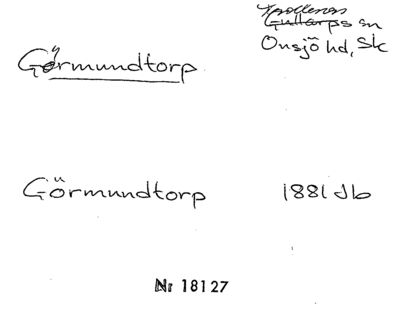 Görmundtorp
Gullarps sn
Onsjö hd, Sk
Görmundtorp 1881 Jb
Nr 18127